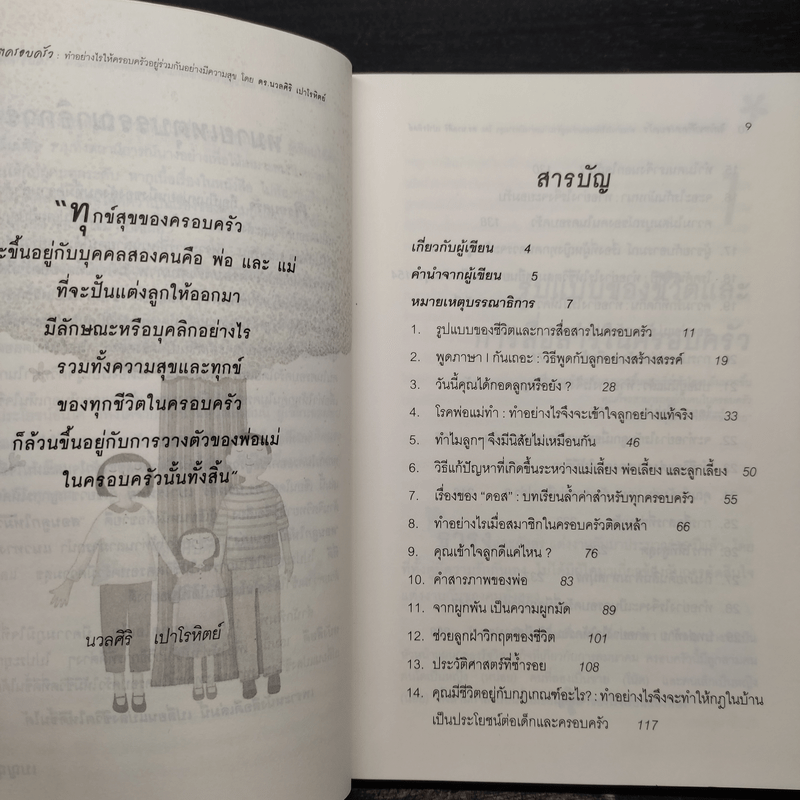 ครอบครัว : ทำอย่างไรให้ครอบครัวอยู่ร่วมกันอย่างมีความสุข โดย ดร.นวลศิริ เปาโรหิตย์
"ทุกข์สุขของครอบครัว
ขึ้นอยู่กับบุคคลสองคนคือ พ่อ และ แม่
ที่จะปั้นแต่งลูกให้ออกมา
มีลักษณะหรือบุคลิกอย่างไร
รวมทั้งความสุขและทุกข์
ของทุกชีวิตในครอบครัว
ก็ล้วนขึ้นอยู่กับการวางตัวของพ่อแม่
ในครอบครัวนั้นทั้งสิ้น"
นวลศิริ เปาโรหิตย์
9
สารบัญ
เกี่ยวกับผู้เขียน 4
คำนำจากผู้เขียน 5
หมายเหตุบรรณาธิการ 7
1. รูปแบบของชีวิตและการสื่อสารในครอบครัว 11
2. พูดภาษา I กันเถอะ : วิธีพูดกับลูกอย่างสร้างสรรค์ 19
3. วันนี้คุณได้กอดลูกหรือยัง ? 28
4. โรคพ่อแม่ทำ : ทำอย่างไรจึงจะเข้าใจลูกอย่างแท้จริง 33
5. ทำไมลูกๆ จึงมีนิสัยไม่เหมือนกัน 46
6. วิธีแก้ปัญหาที่เกิดขึ้นระหว่างแม่เลี้ยง พ่อเลี้ยง และลูกเลี้ยง 50
7. เรื่องของ "ดอส" : บทเรียนล้ำค่าสำหรับทุกครอบครัว 55
8. ทำอย่างไรเมื่อสมาชิกในครอบครัวติดเหล้า 66
9. คุณเข้าใจลูกดีแค่ไหน ? 76
10. คำสารภาพของพ่อ 83
11. จากผูกพัน เป็นความผูกมัด 89
12. ช่วยลูกฝ่าวิกฤตของชีวิต 101
13. ประวัติศาสตร์ที่ซ้ำรอย 108
14. คุณมีชีวิตอยู่กับกฎเกณฑ์อะไร? : ทำอย่างไรจึงจะทำให้กฎในบ้าน
เป็นประโยชน์ต่อเด็กและครอบครัว 117